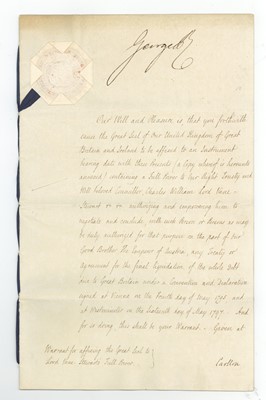 George R
Our Will and Pleasure is that you forthwith
cause the Great Seal of Our United Kingdom of Great
Britain and Ireland to be affixed to an Instrument
bearing date with these Presents (a Copy whereof is hereunto
annexed) containing a Full Power to Our Right Trusty and
Well beloved Councillor Charles William Lord
Stewart authorizing and empowering him to
negotiate and conclude, with such Person or Persons as may
be duly authorized for that purpose on the part of Our
Good Brother The Emperor of Austria, any Treaty or
Agreement for the final Liquidation of the whole Debt
due to Great Britain under a Convention and Declaration
signed at Vienna on the Fourth day of May 1795 and
at Westminster on the Sixteenth day of May 1797. And
for so doing this shall be your Warrant. Given at
Warrant for affixing the Great Seal to
Lord Full Power
Carlton